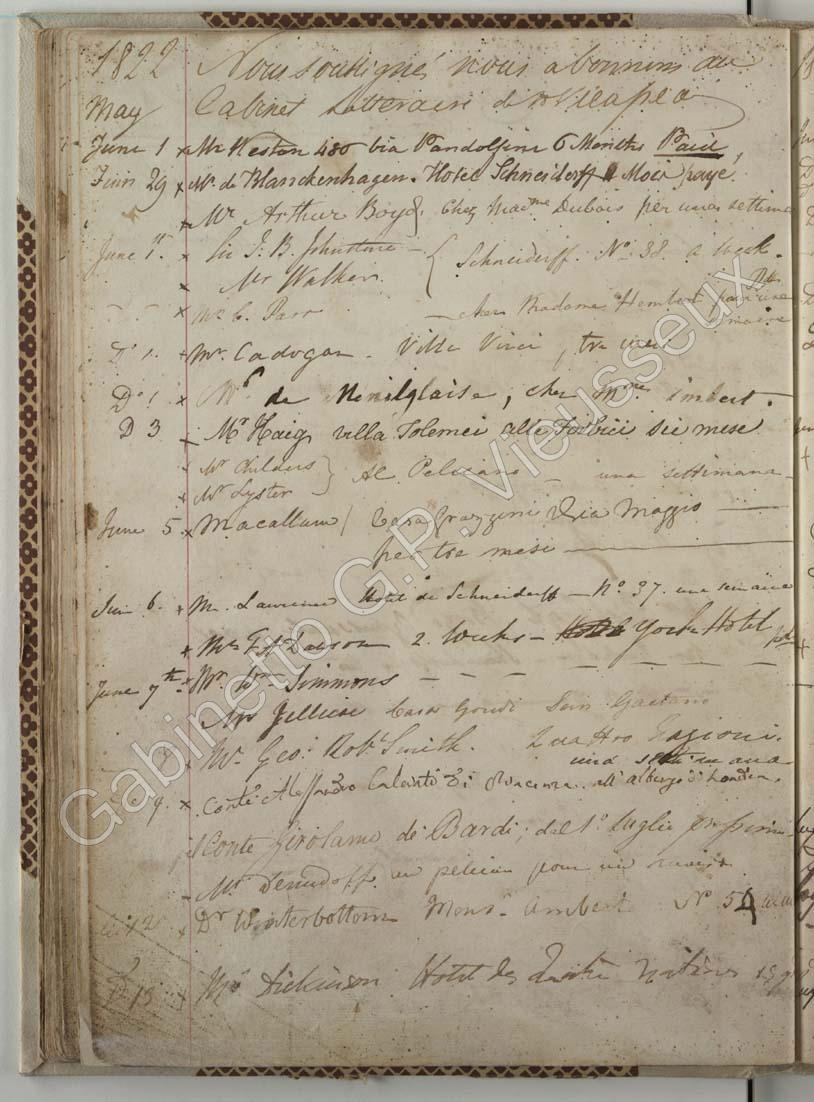 1822 Nous soussignés nous abonnons au
May Cabinet Litteraire de
June 1 x Mr Weston 480 via Pandolfini 6 Months Paid
Juin 29 x Mr. de Blanckenhagen. Hotel Schneiderff Mois payé
x Mr. Arthur Boyd, chez Madme Dubois per una settima
June 1st. x Sir J. B. Johnstone
x Mr Walker } Schneiderff. No. 38. a week.
x Mr. C. Parr — chez Madame Hembert pour une
Do 1. x Mr. Cadogan - Villa Vinci, tre mesi
Do 1. x Mr de Menilglaise, chez Mme. imbert.
D 3 x Mr Haig villa Tolomei alle sei mese
x Mr Childers
x Mr Lyster } Al Pelicano — una settimana
June 5 x Macallum / Casa Grazzini Via Maggio
per tre mesi
Juin 6. x Mr. Lawrence Hotel de Schneiderff — No. 37. une semaine
x Mr Dawson 2. Weeks — York Hotel
June 7th x Mr. Wm Simmons
Mr Casa Gondi San Gaetano
x Mr. Geo: Robt. Smith. Quattro Nazioni.
una settimana
9. x Conte. Alessandro di Piacenza. all'albergo di Londra.
il Conte Girolamo de' Bardi; dal 1o. luglio
Mr. Demidoff. au pelican pour un mois
12 x Dr Winterbottom Monsr. Ambert No 54
13 x Mr Dickinson Hotel des Quatre Nations
Gabinetto G.P. Vieusseux